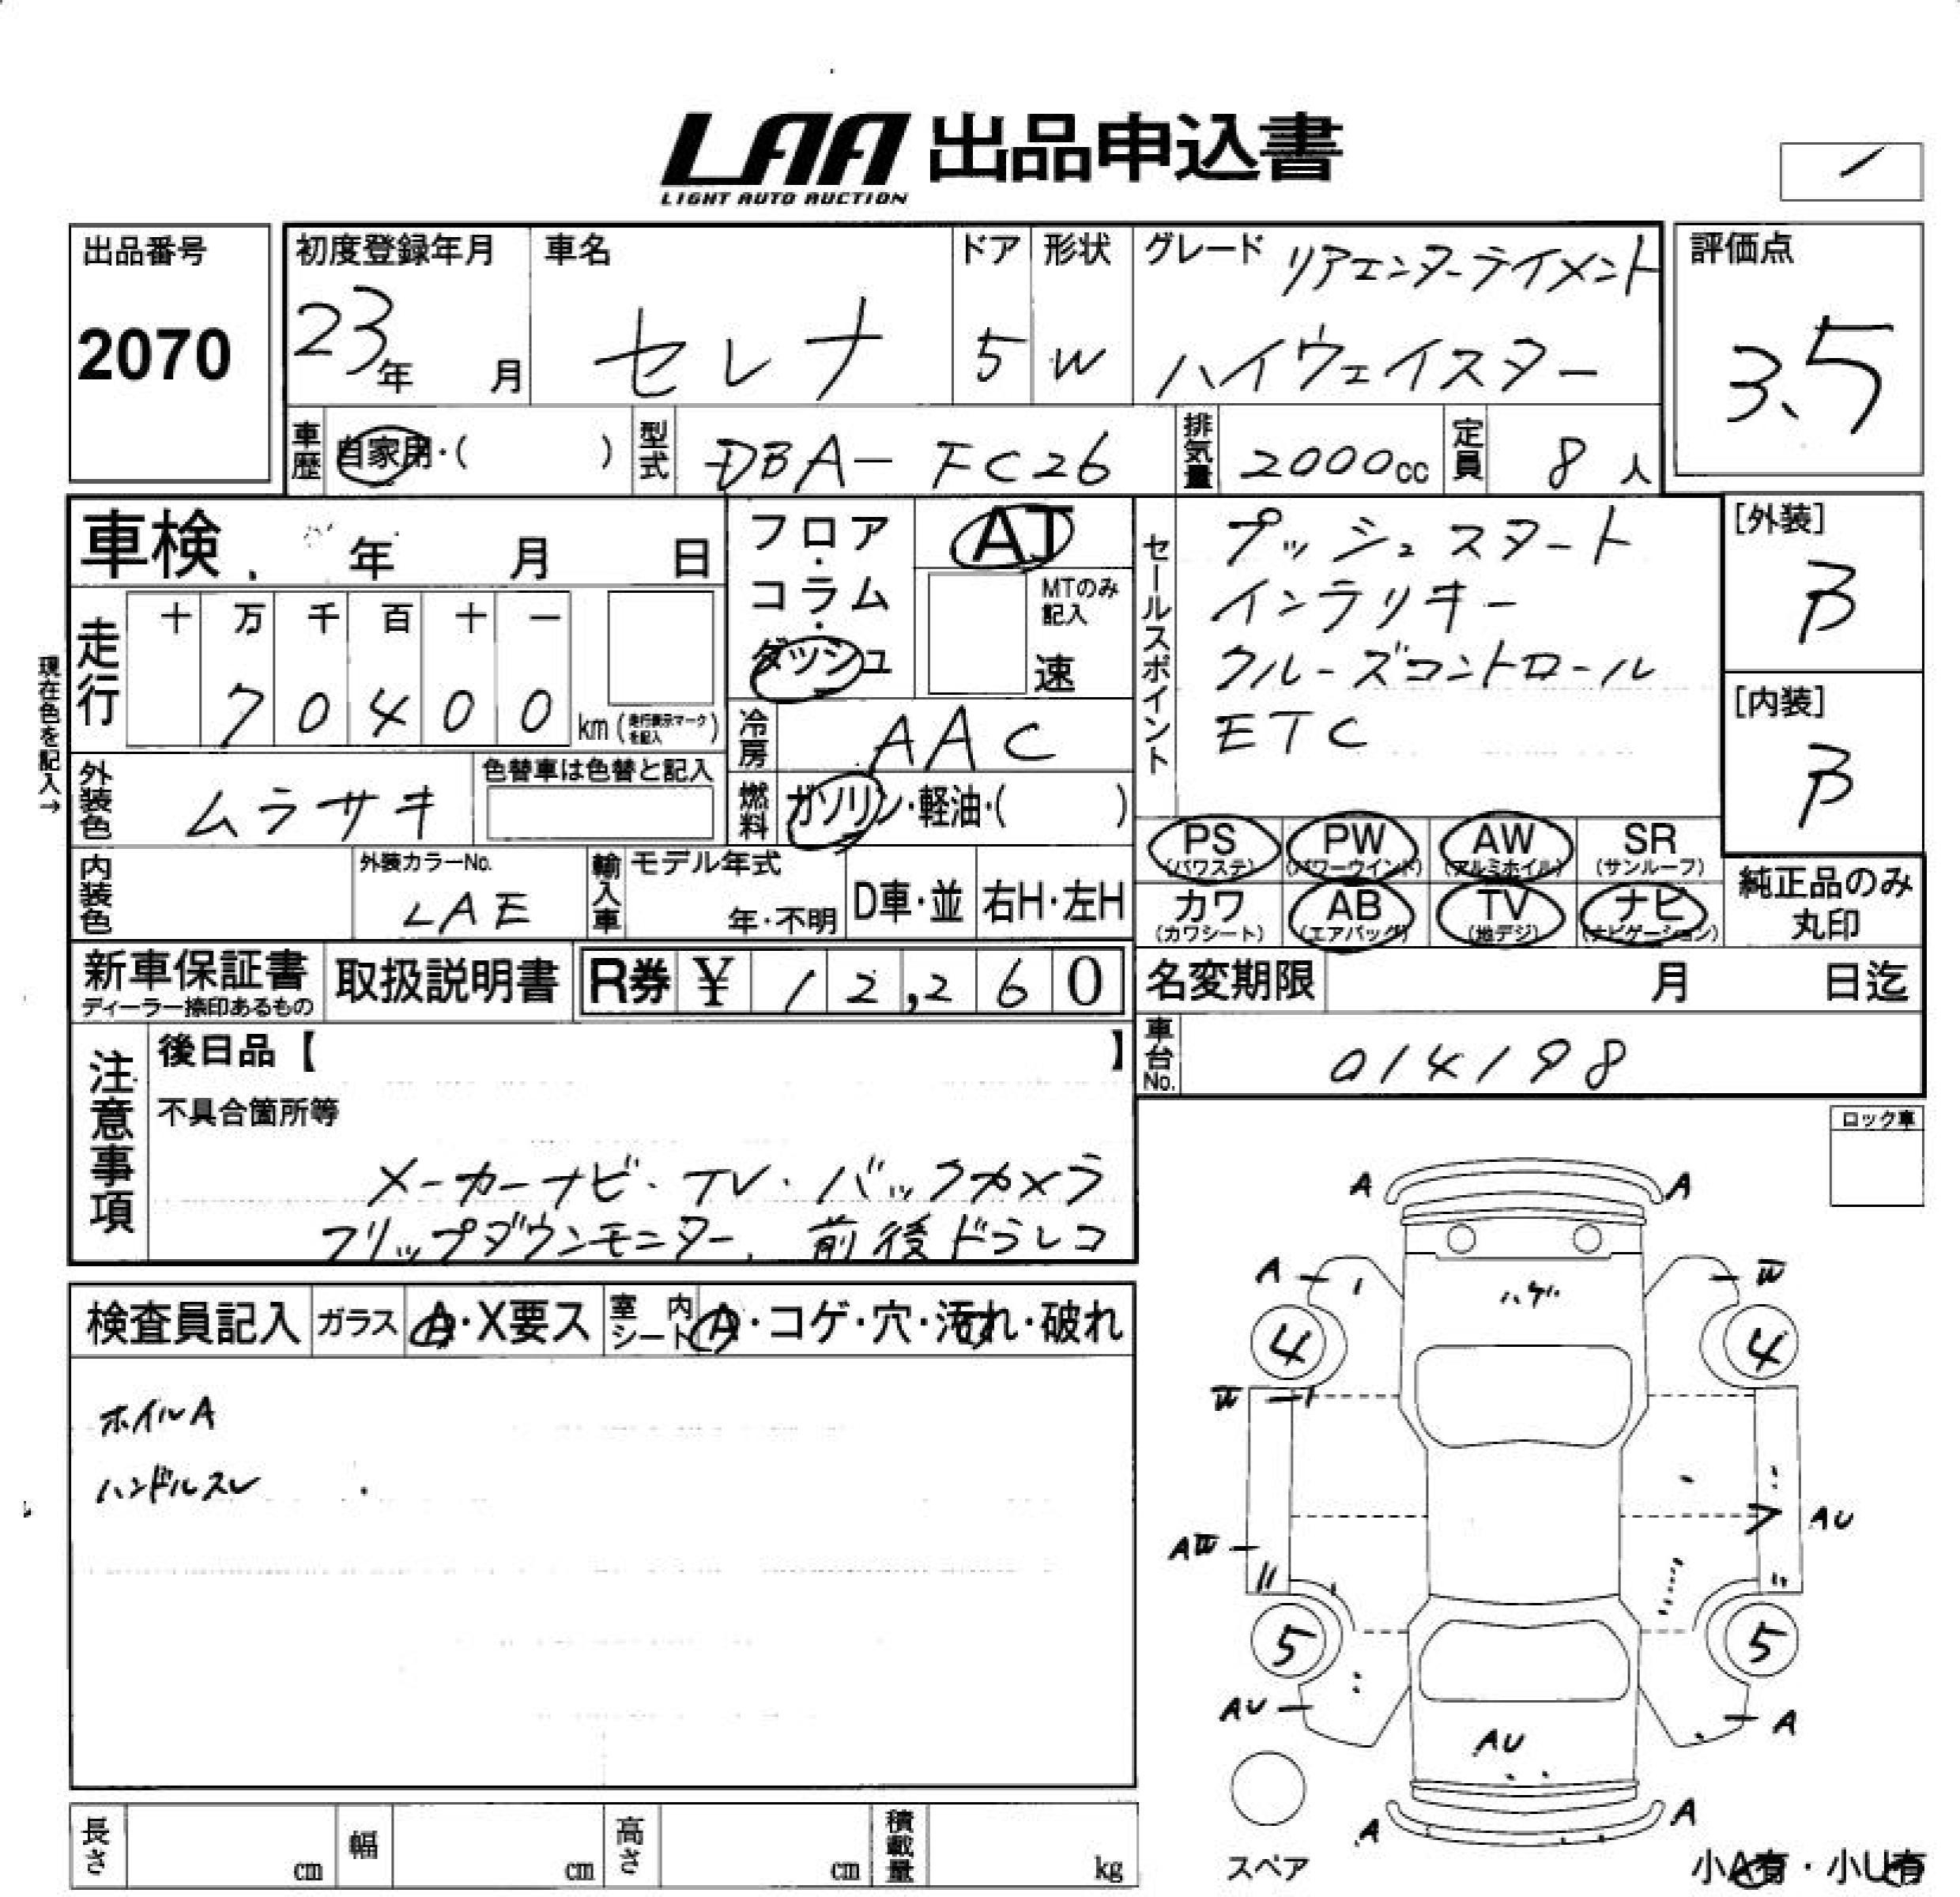 LAA 出品申込書
LIGHT AUTO AUCTION
出品番号
2070
初度登録年月
23年 月
車名
セレナ
ドア
5
形状
W
グレード リアエンターテイメント
ハイウェイスター
評価点
3.5
車歴 自家用・( )
型式 DBA-FC26
排気量 2000cc
定員 8人
車検 年 月 日
現在色を記入→
走行
十 万 千 百 十 一
7 0 4 0 0 km (走行表示マークを記入)
フロア
・
コラム
・
ダッシュ
AT
MTのみ記入
速
冷房 AAC
燃料 ガソリン・軽油・( )
外装色 ムラサキ
色替車は色替と記入
内装色
外装カラーNo.
LAE
輸入車 モデル年式
年・不明
D車・並
右H・左H
セールスポイント
プッシュスタート
インテリキー
クルーズコントロール
ETC
[外装]
B
[内装]
B
PS (パワステ)
PW (パワーウインド)
AW (アルミホイル)
SR (サンルーフ)
カワ (カワシート)
AB (エアバッグ)
TV (地デジ)
ナビ (ナビゲーション)
純正品のみ
丸印
新車保証書
ディーラー捺印あるもの
取扱説明書
R券 ¥ 12,260
名変期限 月 日迄
車台No. 014198
注意事項
後日品【 】
不具合箇所等
メーカーナビ・TV・バックカメラ
フリップダウンモニター、前後ドラレコ
ロック車
検査員記入
ガラス
A・X要ス
室内シート
A・コゲ・穴・汚れ・破れ
ホイルA
ハンドルスレ
A A
A W
ハゲ
4 4
W
AU
AW
5 5
AU A
AU
A A
スペア
小A有・小U有
長さ cm
幅 cm
高さ cm
積載量 kg